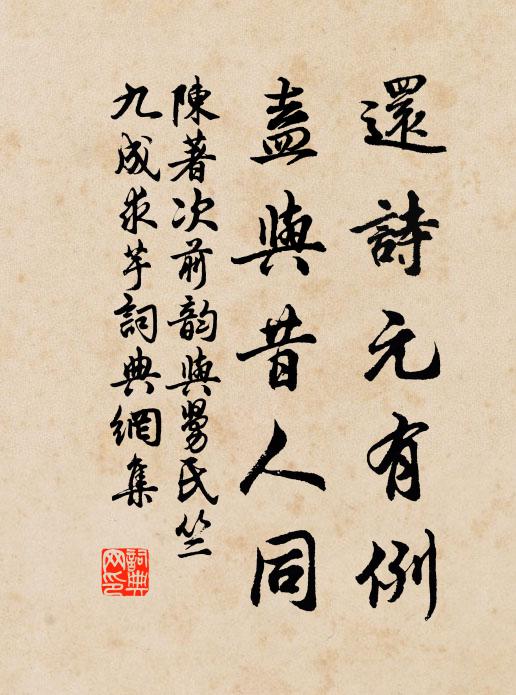 還詩元有例
盍與昔人同
陳著次前韵與勞民竺
九成求芋詞典網集
詞典網印